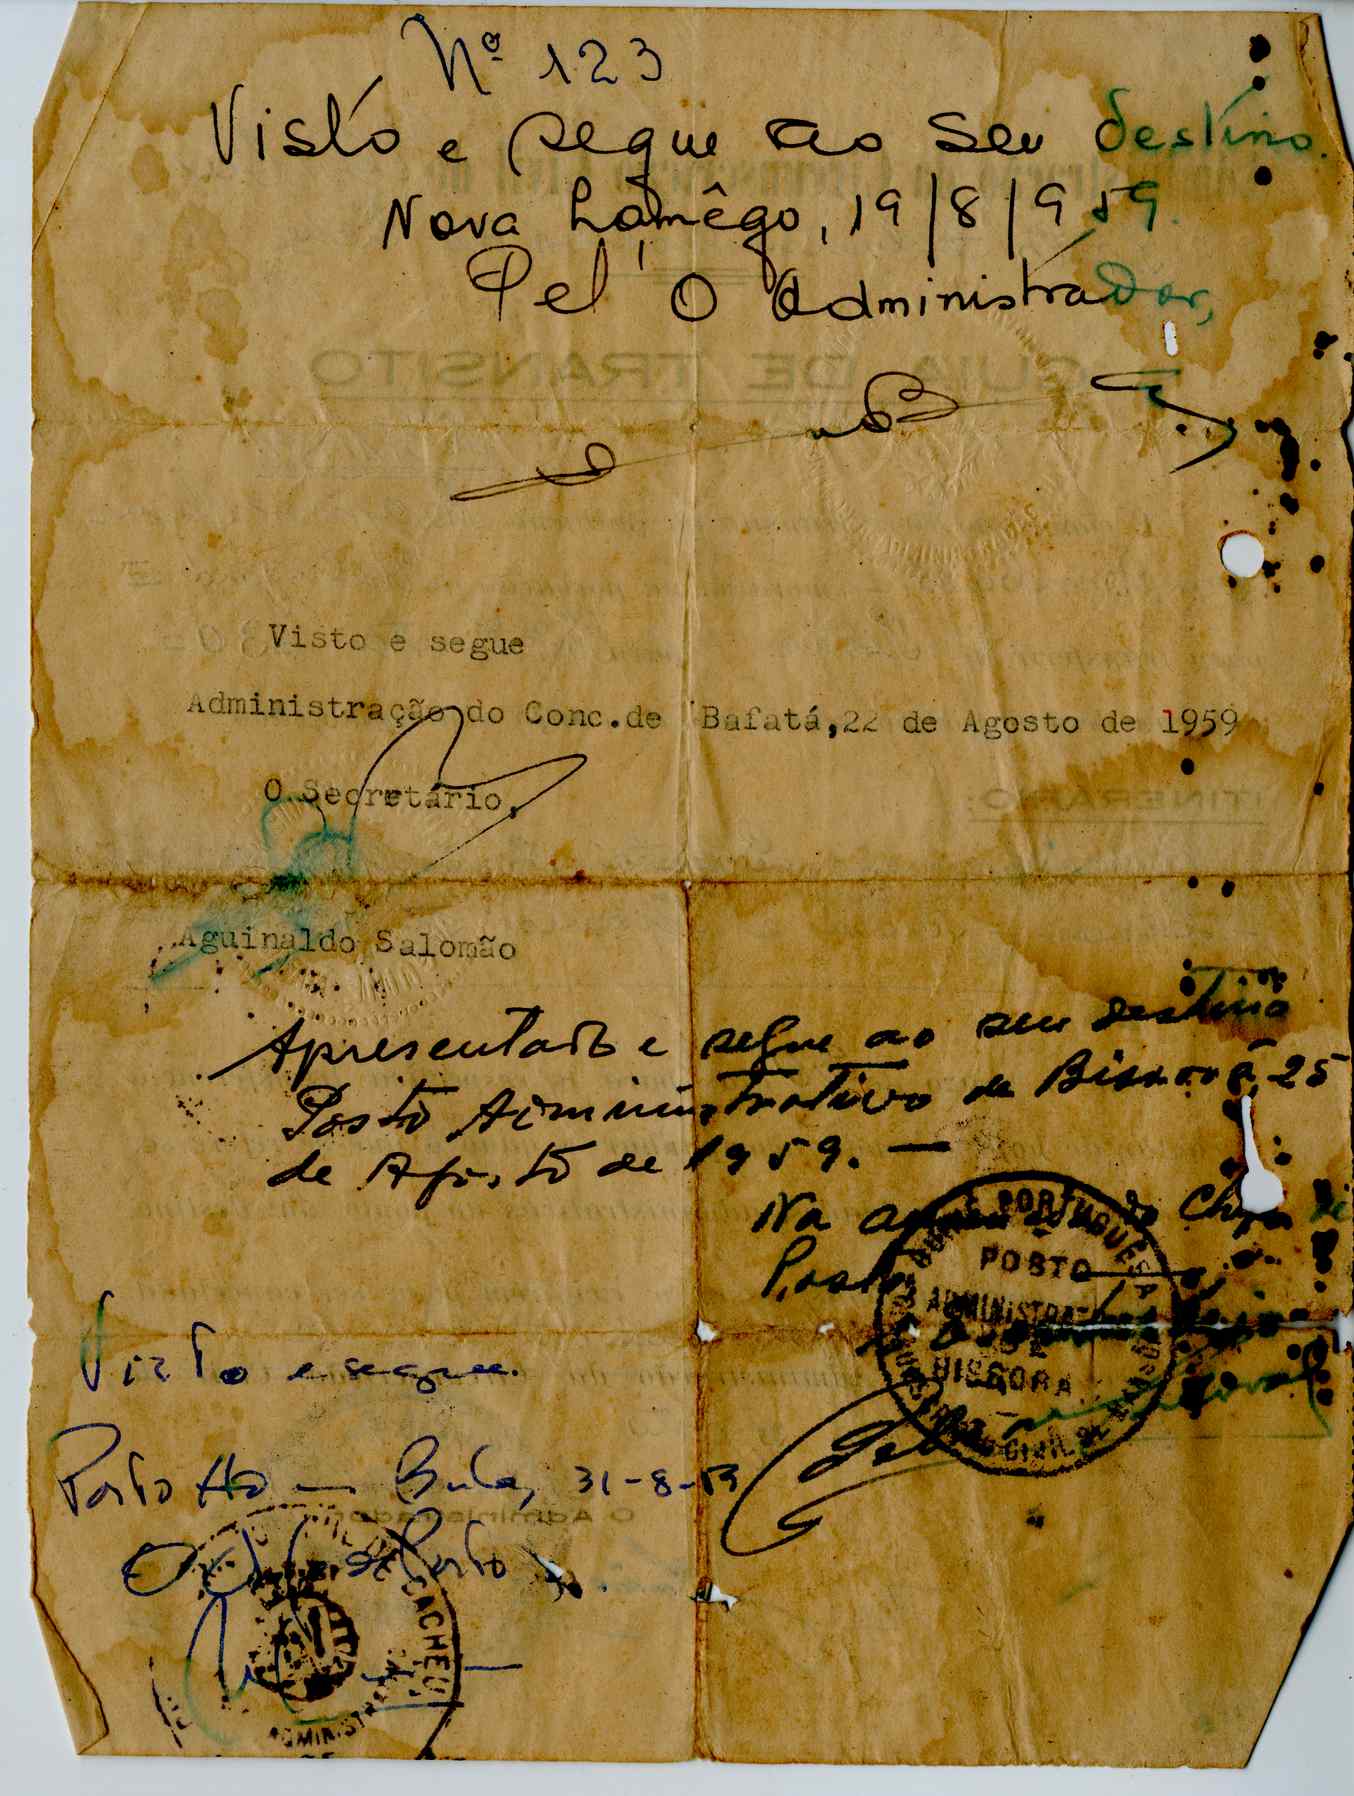 Nº 123
Visto e segue ao seu destino.
Nova Lamêgo, 19/8/959.
Pel' O Administrador,
Visto e segue
Administração do Conc.de Bafatá,22 de Agosto de 1959
O Secretário,
Aguinaldo Salomão
Apresentado e segue ao seu destino
Posto Administrativo de Bissorã, 25
de Agosto de 1959. —
Na do Chefe de
Posto
PORTUGUESA
POSTO
ADMINISTRATIVO
DE
BISSORA
CIVIL DE
Visto e segue.
Posto Bula, 31-8-59
O Administrador
Posto
CACHEU
ADMINIST